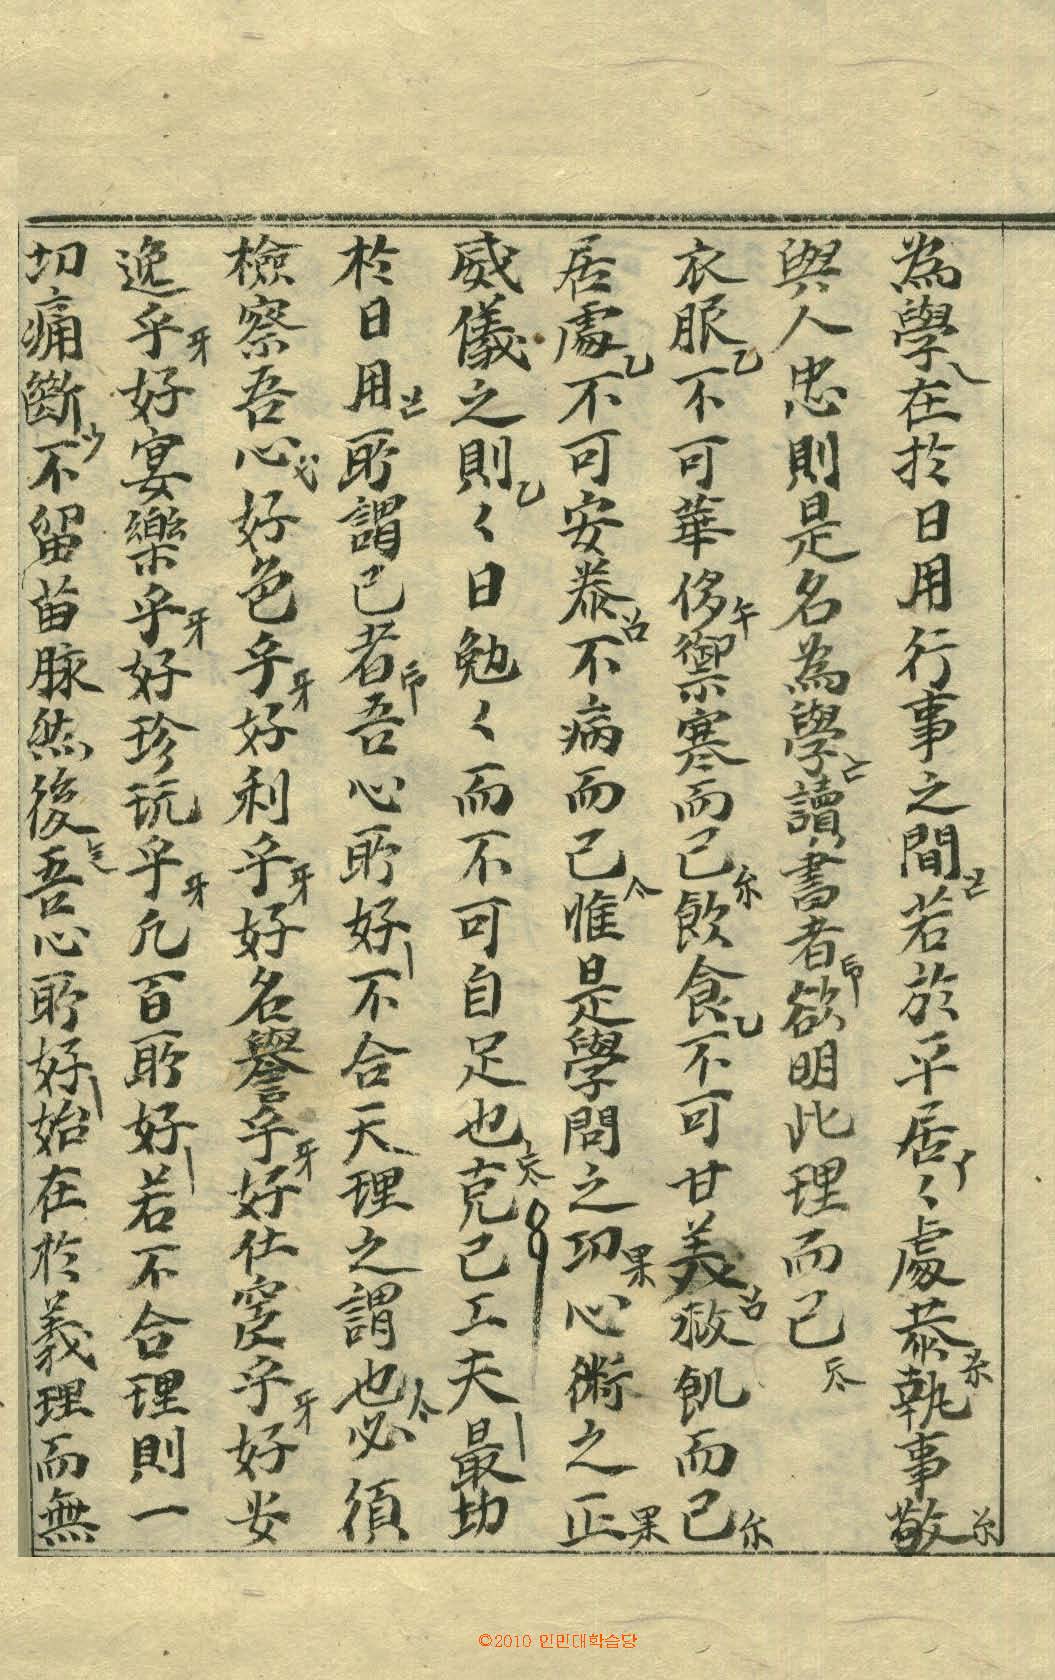 為學在於日用行事之間若於平居〻處恭執事敬
與人忠則是名為學讀書者欲明此理而已
衣服不可華侈禦寒而已飲食不可甘美救飢而已
居處不可安泰不病而已惟是學問之功心術之正
威儀之則〻日勉〻而不可自足也克己工夫最切
於日用所謂己者吾心所好不合天理之謂也必須
檢察吾心好色乎好利乎好名譽乎好仕宦乎好安
逸乎好宴樂乎好珍玩乎凡百所好若不合理則一
切痛斷不留苗脉然後吾心所好始在於義理而無
©2010 인민대학습당